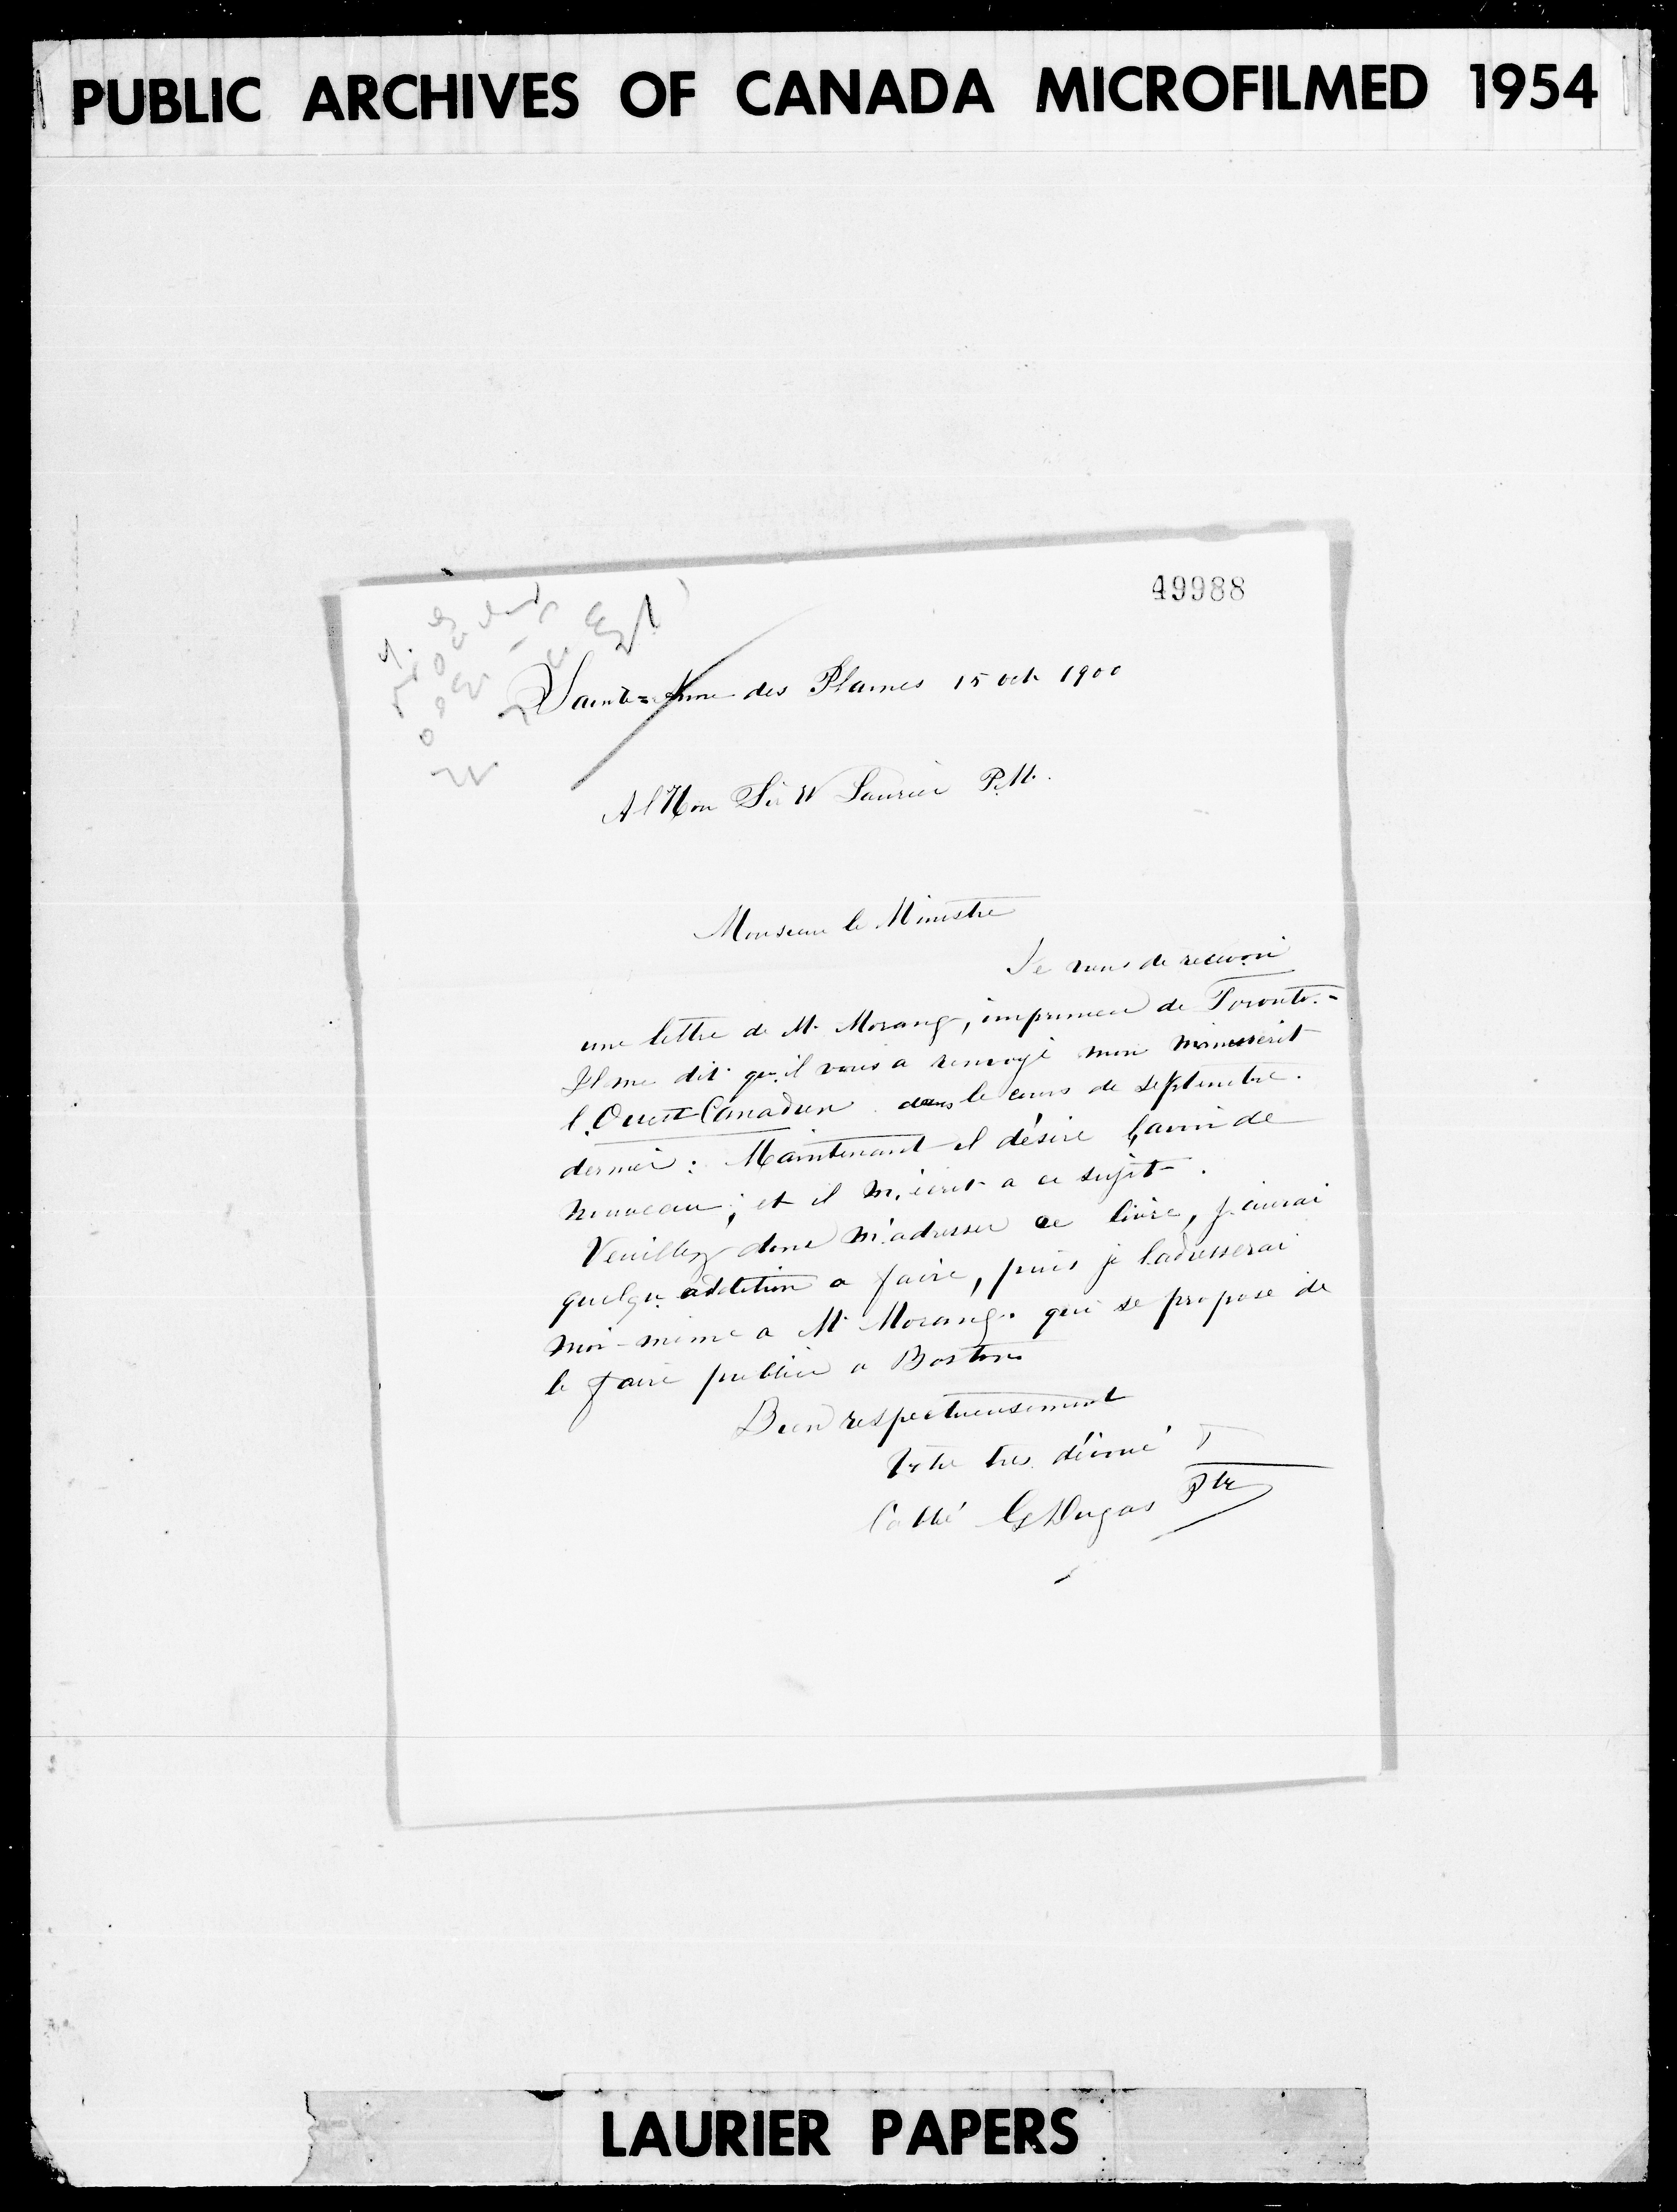 PUBLIC ARCHIVES OF CANADA MICROFILMED 1954
49988
Sainte=Anne des Plaines 15 oct 1900
A l'Hon Sir W Laurier P.M.
Monsieur le Ministre
Je viens de recevoir
une lettre de M. Morang, imprimeur de Toronto.-
Il me dit qu'il vous a renvoyé mon manuscrit
l'Ouest Canadien dans le cours de septembre.
dernier: Maintenant il désire l'avoir de
nouveau; et il m'écrit a ce sujet.
Veuillez donc m'adresser ce livre, j'aurai
quelqu addition a faire, puis je l'adresserai
moi-même a M. Morang. qui se propose de
le faire publier a Boston
Bien respectueusement
Votre tres dévoué
l'abbé G Dugas Ptr
LAURIER PAPERS